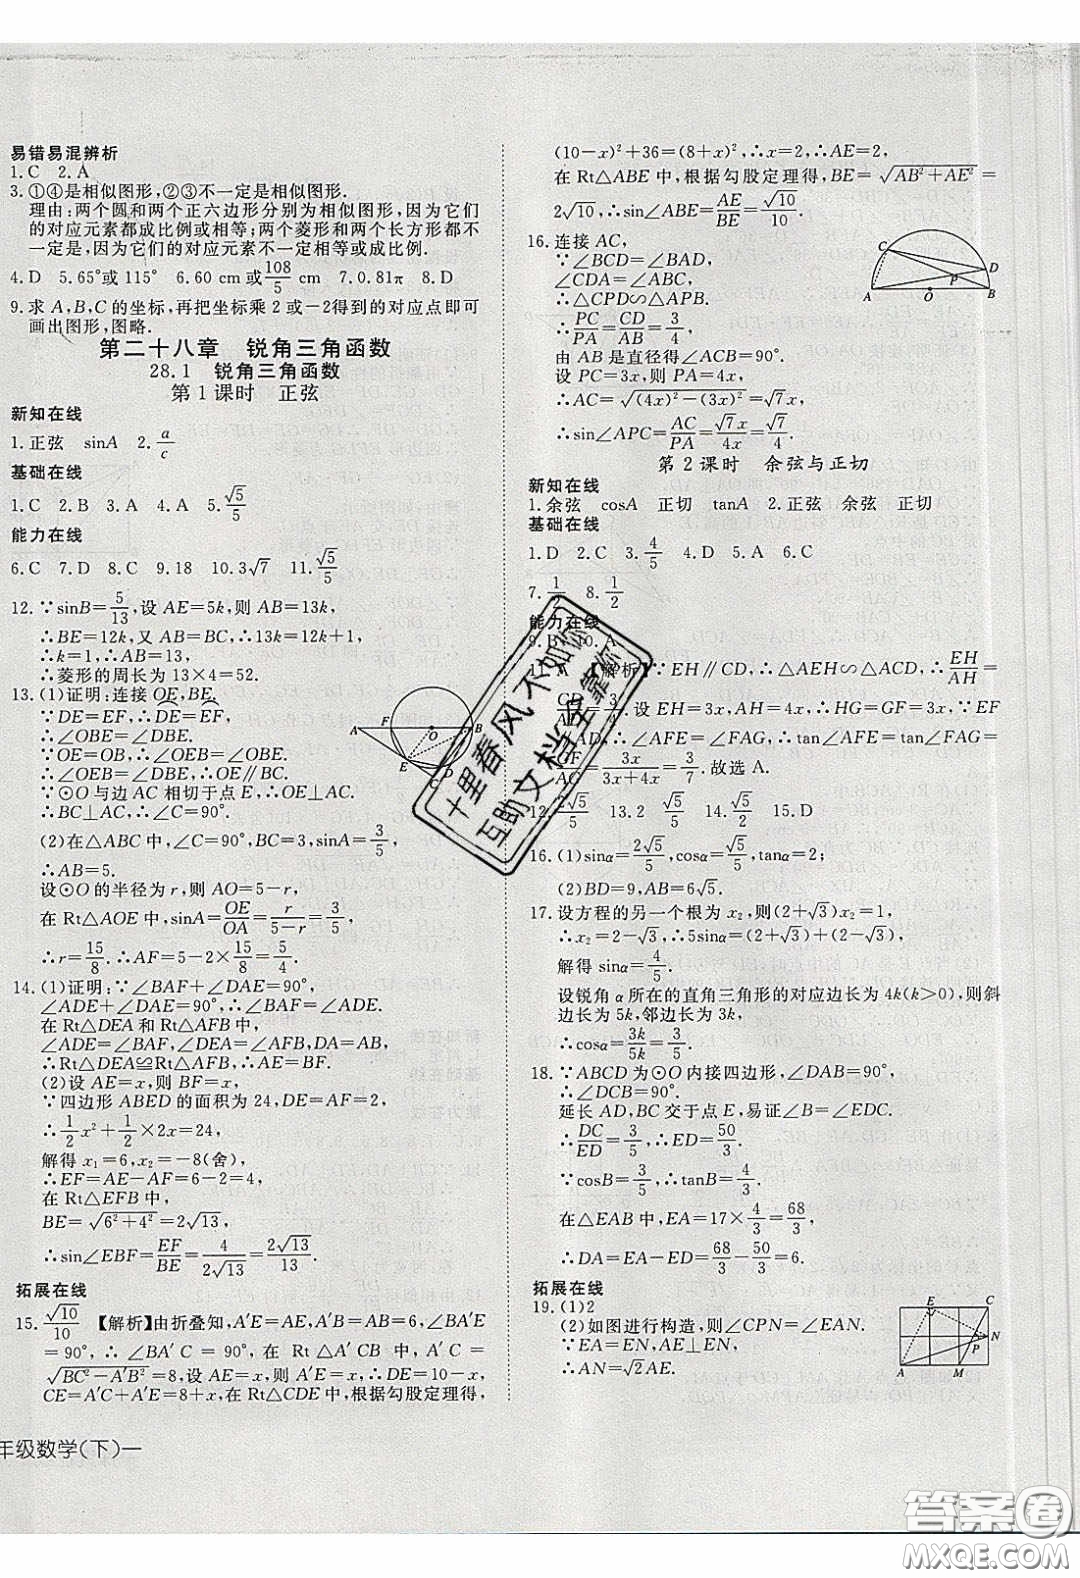 易错易混辨析
1.C 2.A
3.①④是相似图形,②③不一定是相似图形.
理由:两个圆和两个正六边形分别为相似图形,因为它们
的对应元素都成比例或相等;两个菱形和两个长方形都不
一定是,因为它们的对应元素不一定相等或成比例.
4.D 5.65°或 115° 6.60 cm或108/5 cm 7.0.81π 8.D
9.求 A,B,C 的坐标,再把坐标乘 2 或-2得到的对应点即可
画出图形,图略.
第二十八章 锐角三角函数
28.1 锐角三角函数
第1课时 正弦
新知在线
1.正弦 sinA 2.a/c
基础在线
1.C 2.B 3.A 4.A 5.√5/5
能力在线
6.C 7.D 8.C 9.18 10.3√7 11.√5/5
12.∵sinB=5/13,设 AE=5k,则 AB=13k,
∴BE=12k,又 AB=BC,∴13k=12k+1,
∴k=1,∴AB=13,
∴菱形的周长为 13×4=52.
13.(1)证明:连接OE,BE.
∵DE=EF,∴DE=EF,
∴∠OBE=∠DBE.
∵OE=OB,∴∠OEB=∠OBE.
∴∠OEB=∠DBE,∴OE∥BC.
∵⊙O 与边 AC 相切于点 E,∴OE⊥AC.
∴BC⊥AC,∴∠C=90°.
(2)在△ABC 中,∠C=90°,BC=3,sinA=3/5,
∴AB=5.
设⊙O 的半径为 r,则 AO=5-r,
在 Rt△AOE 中,sinA=OE/OA=r/(5-r)=3/5,
∴r=15/8.∴AF=5-2×15/8=5/4.
14.(1)证明:∵∠BAF+∠DAE=90°,
∠ADE+∠DAE=90°,∴∠BAF=∠ADE.
在 Rt△DEA 和 Rt△AFB 中,
∠ADE=∠BAF,∠DEA=∠AFB,DA=AB,
∴Rt△DEA≌Rt△AFB,∴AE=BF.
(2)设 AE=x,则 BF=x,
∵四边形 ABED 的面积为 24,DE=AF=2,
∴1/2x²+1/2×2x=24,
解得 x₁=6,x₂=-8(舍),
∴EF=AE-AF=6-2=4,
在 Rt△EFB 中,
BE=√(6²+4²)=2√13,
∴sin∠EBF=EF/BE=4/(2√13)=2√13/13.
拓展在线
15.√10/10 【解析】由折叠知,A′E=AE,A′B=AB=6,∠BA′E
=90°,∴∠BA′C=90°.在 Rt△A′CB 中,A′C=
√(BC²-A′B²)=8,设 AE=x,则 A′E=x,∴DE=10-x,
CE=A′C+A′E=8+x,在 Rt△CDE 中,根据勾股定理得,
(10-x)²+36=(8+x)²,∴x=2,∴AE=2,
在 Rt△ABE 中,根据勾股定理得,BE=√(AB²+AE²)=
2√10,∴sin∠ABE=AE/BE=√10/10.
16.连接 AC,
∵∠BCD=∠BAD,
∠CDA=∠ABC,
∴△CPD∽△APB.
∴PC/PA=CD/AB=3/4
由 AB 是直径得∠ACB=90°.
设 PC=3x,则 PA=4x,
∴AC=√((4x)²-(3x)²)=√7x,
∴sin∠APC=AC/PA=√7x/4x=√7/4.
第2课时 余弦与正切
新知在线
1.余弦 cosA 正切 tanA 2.正弦 余弦 正切
基础在线
1.D 2.C 3.4/5 4.D 5.A 6.C
7.1/2 8.1/2
能力在线
9.B 10.A
11.A 【解析】∵EH∥CD,∴△AEH∽△ACD,∴EH/AH
=CD/AD=3/4.设 EH=3x,AH=4x,∴HG=3x,∵EF
∥AD,∴∠AFE=∠FAG,∴tan∠AFE=tan∠FAG=
GF/AG=3x/(3x+4x)=3/7.故选 A.
12.2√5/5 13.2 14.√5/5 15.D
16.(1)sinα=2√5/5,cosα=√5/5,tanα=2;
(2)BD=9,AB=6√5.
17.设方程的另一个根为 x₂,则(2+√3)x₂=1,
∴x₂=2-√3,∴5sinα=(2+√3)+(2-√3),
解得 sinα=4/5.
设锐角 α 所在的直角三角形的对应边长为 4k(k>0),则斜
边长为 5k,邻边长为 3k,
∴cosα=3k/5k=3/5.
18.∵ABCD 为⊙O 内接四边形,∠DAB=90°,
∴∠DCB=90°.
延长 AD,BC 交于点 E,易证∠B=∠EDC.
∴DC/ED=3/5,∴ED=50/3.
∵cosB=3/5,∴tanB=4/3.
在△EAB 中,EA=17×4/3=68/3,
∴DA=EA-ED=68/3-50/3=6.
拓展在线
19.(1)2
(2)如图进行构造,则∠CPN=∠EAN.
∵EA=EN,AE⊥EN,
∴AN=√2AE.
A F O B E D C
C D P A O B
E C N P A M
年级数学(下)一
十里春风不如你
互助文档全靠你
答案圈
MXQE.COM